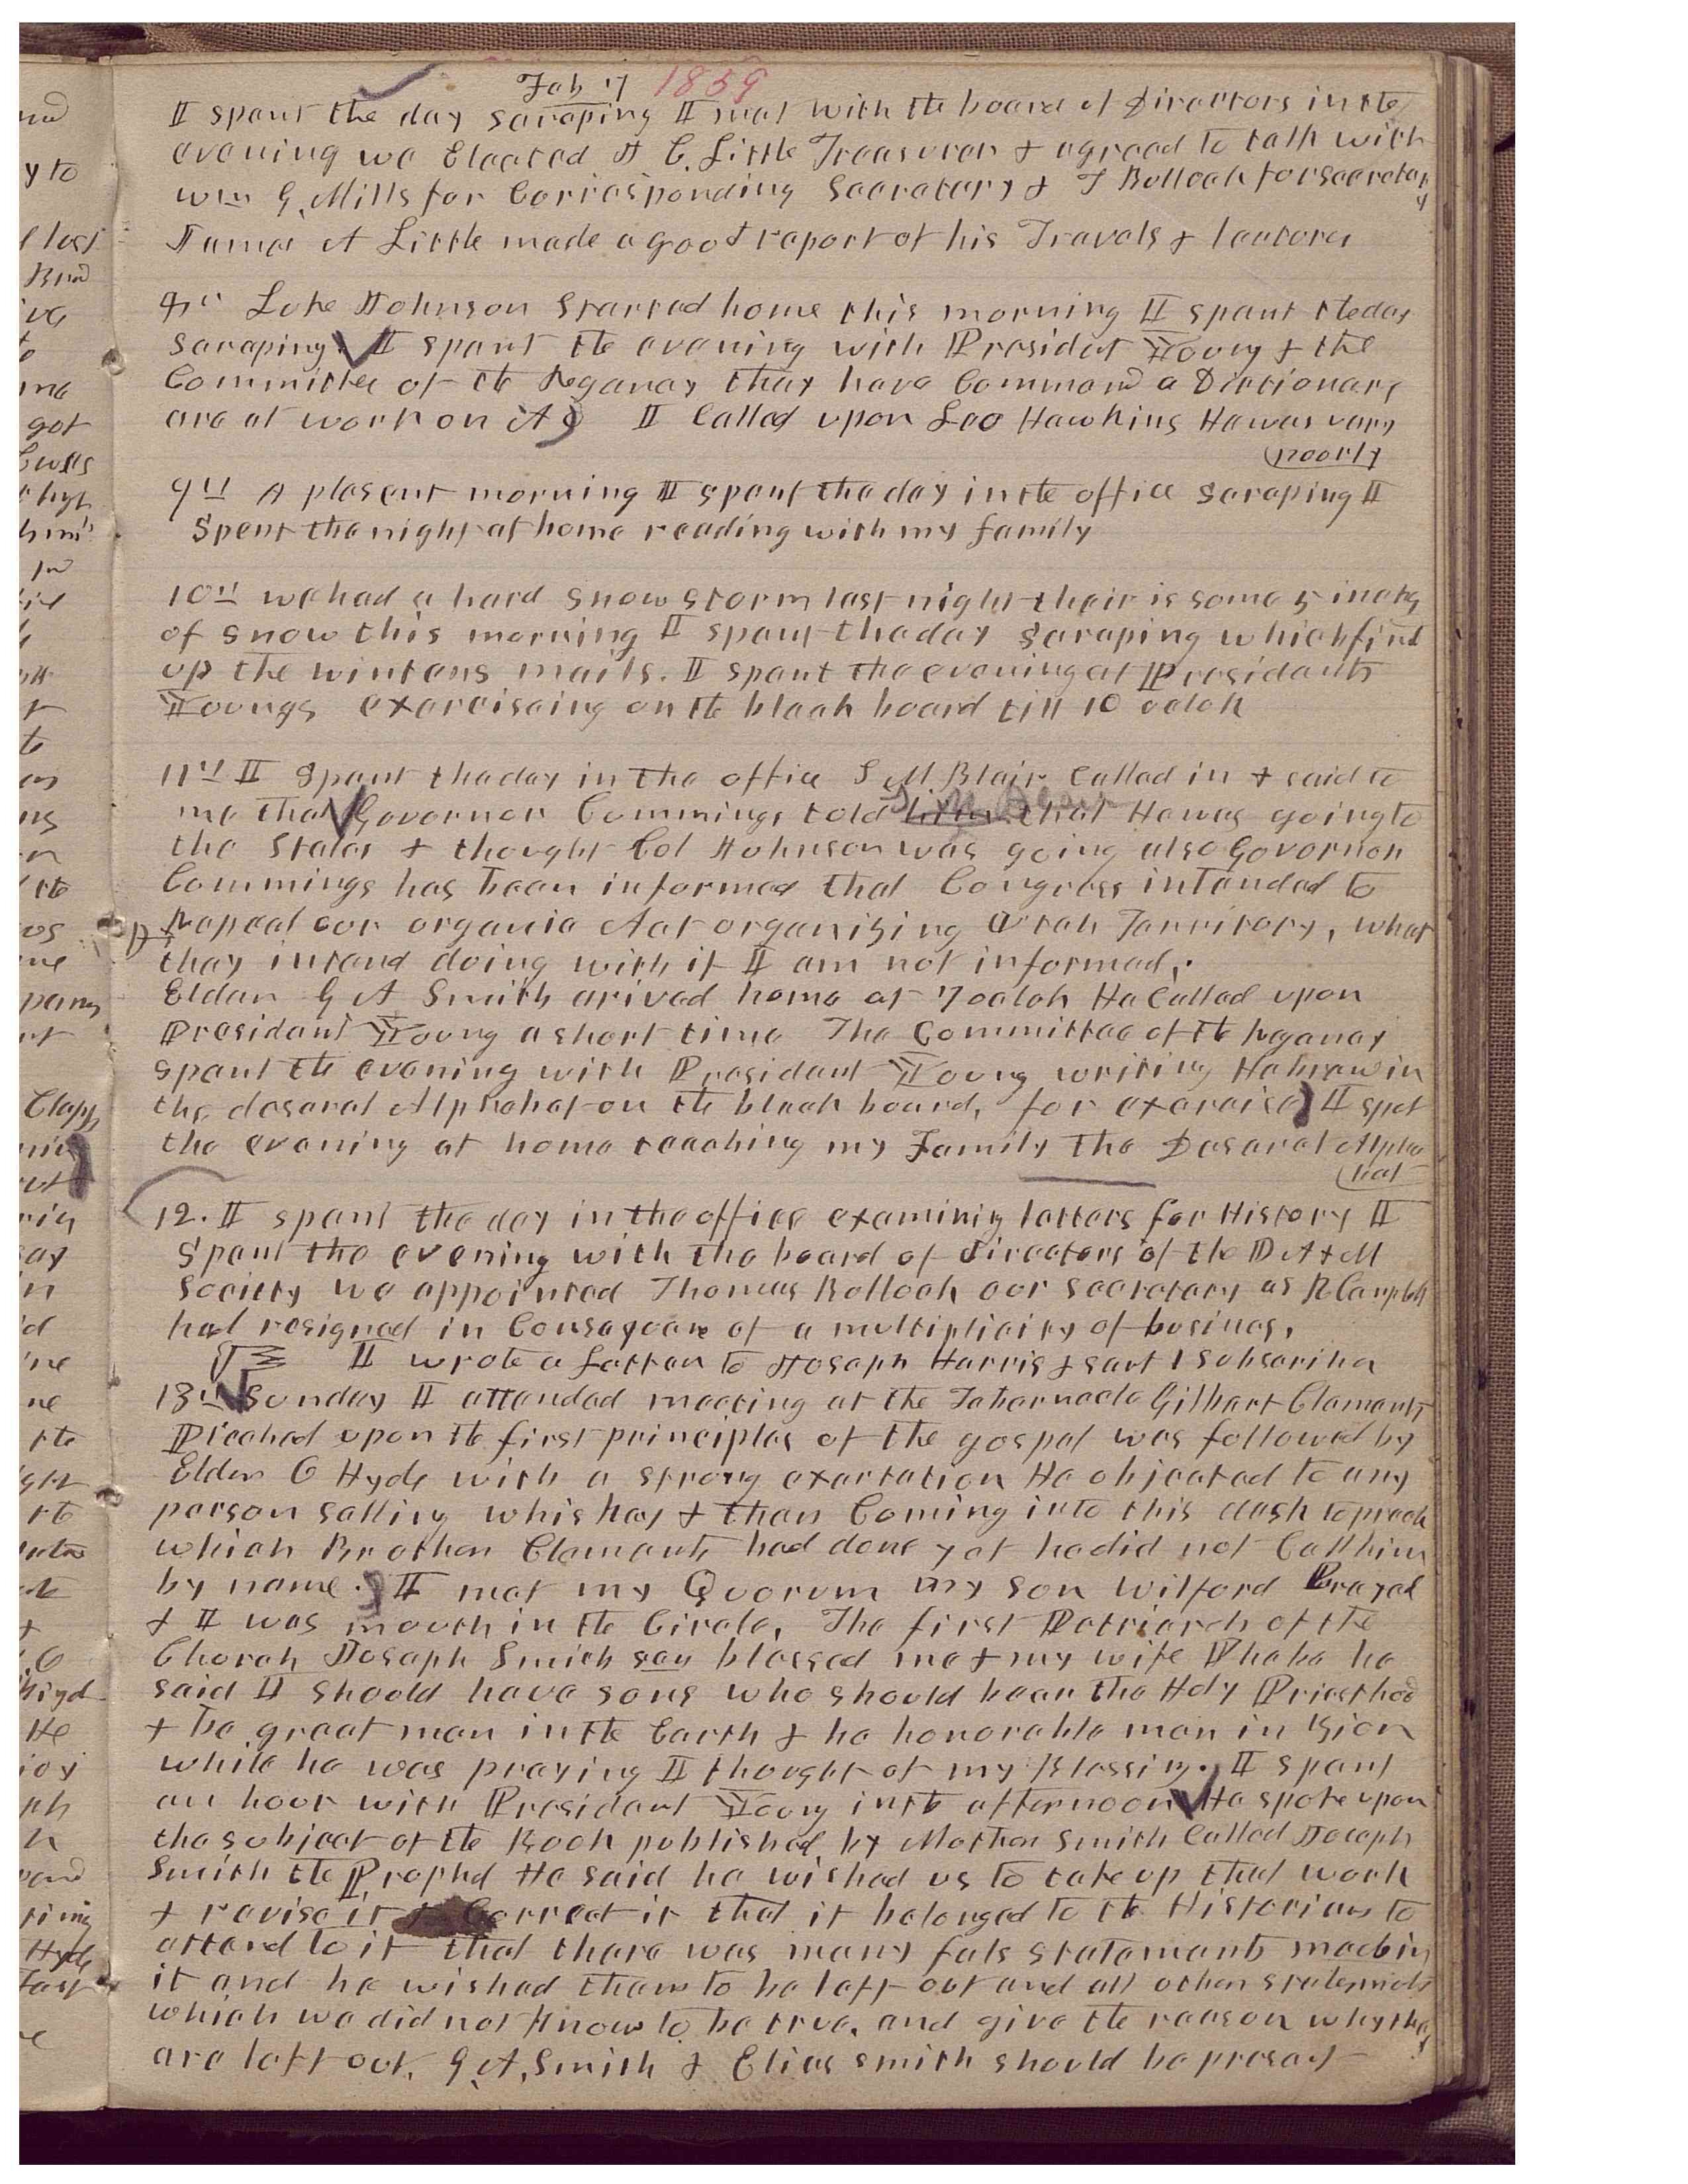 Feb 7 1859
I spent the day scraping I met with the board of Directors in the
evening we Elected F C. Little Treasurer & agreed to talk with
wm G. Mills for Corrisponding Secretary & T Bullock for secretary
James A Little made a good report of his Travels & lectures
8th Luke Johnson Started home this morning I spent the day
scraping. I spent the evening with President Young & the
Committee of the Regancy they have Commencd a Dictionary
are at work on A I Called upon Leo Hawkins He was very
poorly
9th A plesent morning I spent the day in the office scraping I
Spent the night at home reading with my family
10th we had a hard snow storm last night their is some 5 inches
of snow this morning I spent the day scraping which find
up the winters mails. I spent the evening at Presidents
Youngs exerciseing on the black board till 10 oclok
11th I Spent the day in the office S M. Blair Called in & said to
me that Governor Cummings told him S. M. Blair that He was going to
the States & thought Col Johnson was going also Governor
Cummings has been informed that Congress intended to
Repeal our organic Act organizing Utah Territory, what
they intend doing with it I am not informed.
Elder G A Smith arived home at 7 oclok He Called upon
President Young a short time The Committee of the Regancy
spent the evening with President Young writing Hebrew in
the deseret Alphabet on the black board, for exercise I spet
the evening at home teaching my Family the Deseret Alpha
bet
12. I spent the day in the office examining letters for History I
Spent the evening with the board of directors of the D A & M
Society we appointed Thomas Bullock our secretary as R Campbell
had resigned in Consequence of a multiplicity of business,
I wrote a Letter to Joseph Harris & sent 1 Subscriber
13th Sunday I attended meeting at the Tabernacle Gilbert Clements
Preached upon the first principles of the gospel was followed by
Elder O Hyde with a strong exertation He objected to any
person selling whiskey & then Coming into this desk to preach
which Brother Clements had done yet he did not Call him
by name. I met my Quorum my son Wilford Prayed
& I was mouth in the Circle, The first Patriarch of the
Church Joseph Smith sen blessed me & my wife Phebe he
said I should have sons who should bear the Holy Priesthood
& be great men in the Earth & be honorable men in Zion
while he was praying I thought of my Blessing. I spent
an hour with President Young in the afternoon He spoke upon
the subject of the Book published by Mother Smith Called Joseph
Smith the Prophet He said he wished us to take up that work
& revise it & Correct it that it belonged to the Historians to
attend to it that there was many fals statements made in
it and he wished them to be left out and all other statements
which we did not know to be true, and give the reason why they
are left out. G. A. Smith & Elias Smith should be present